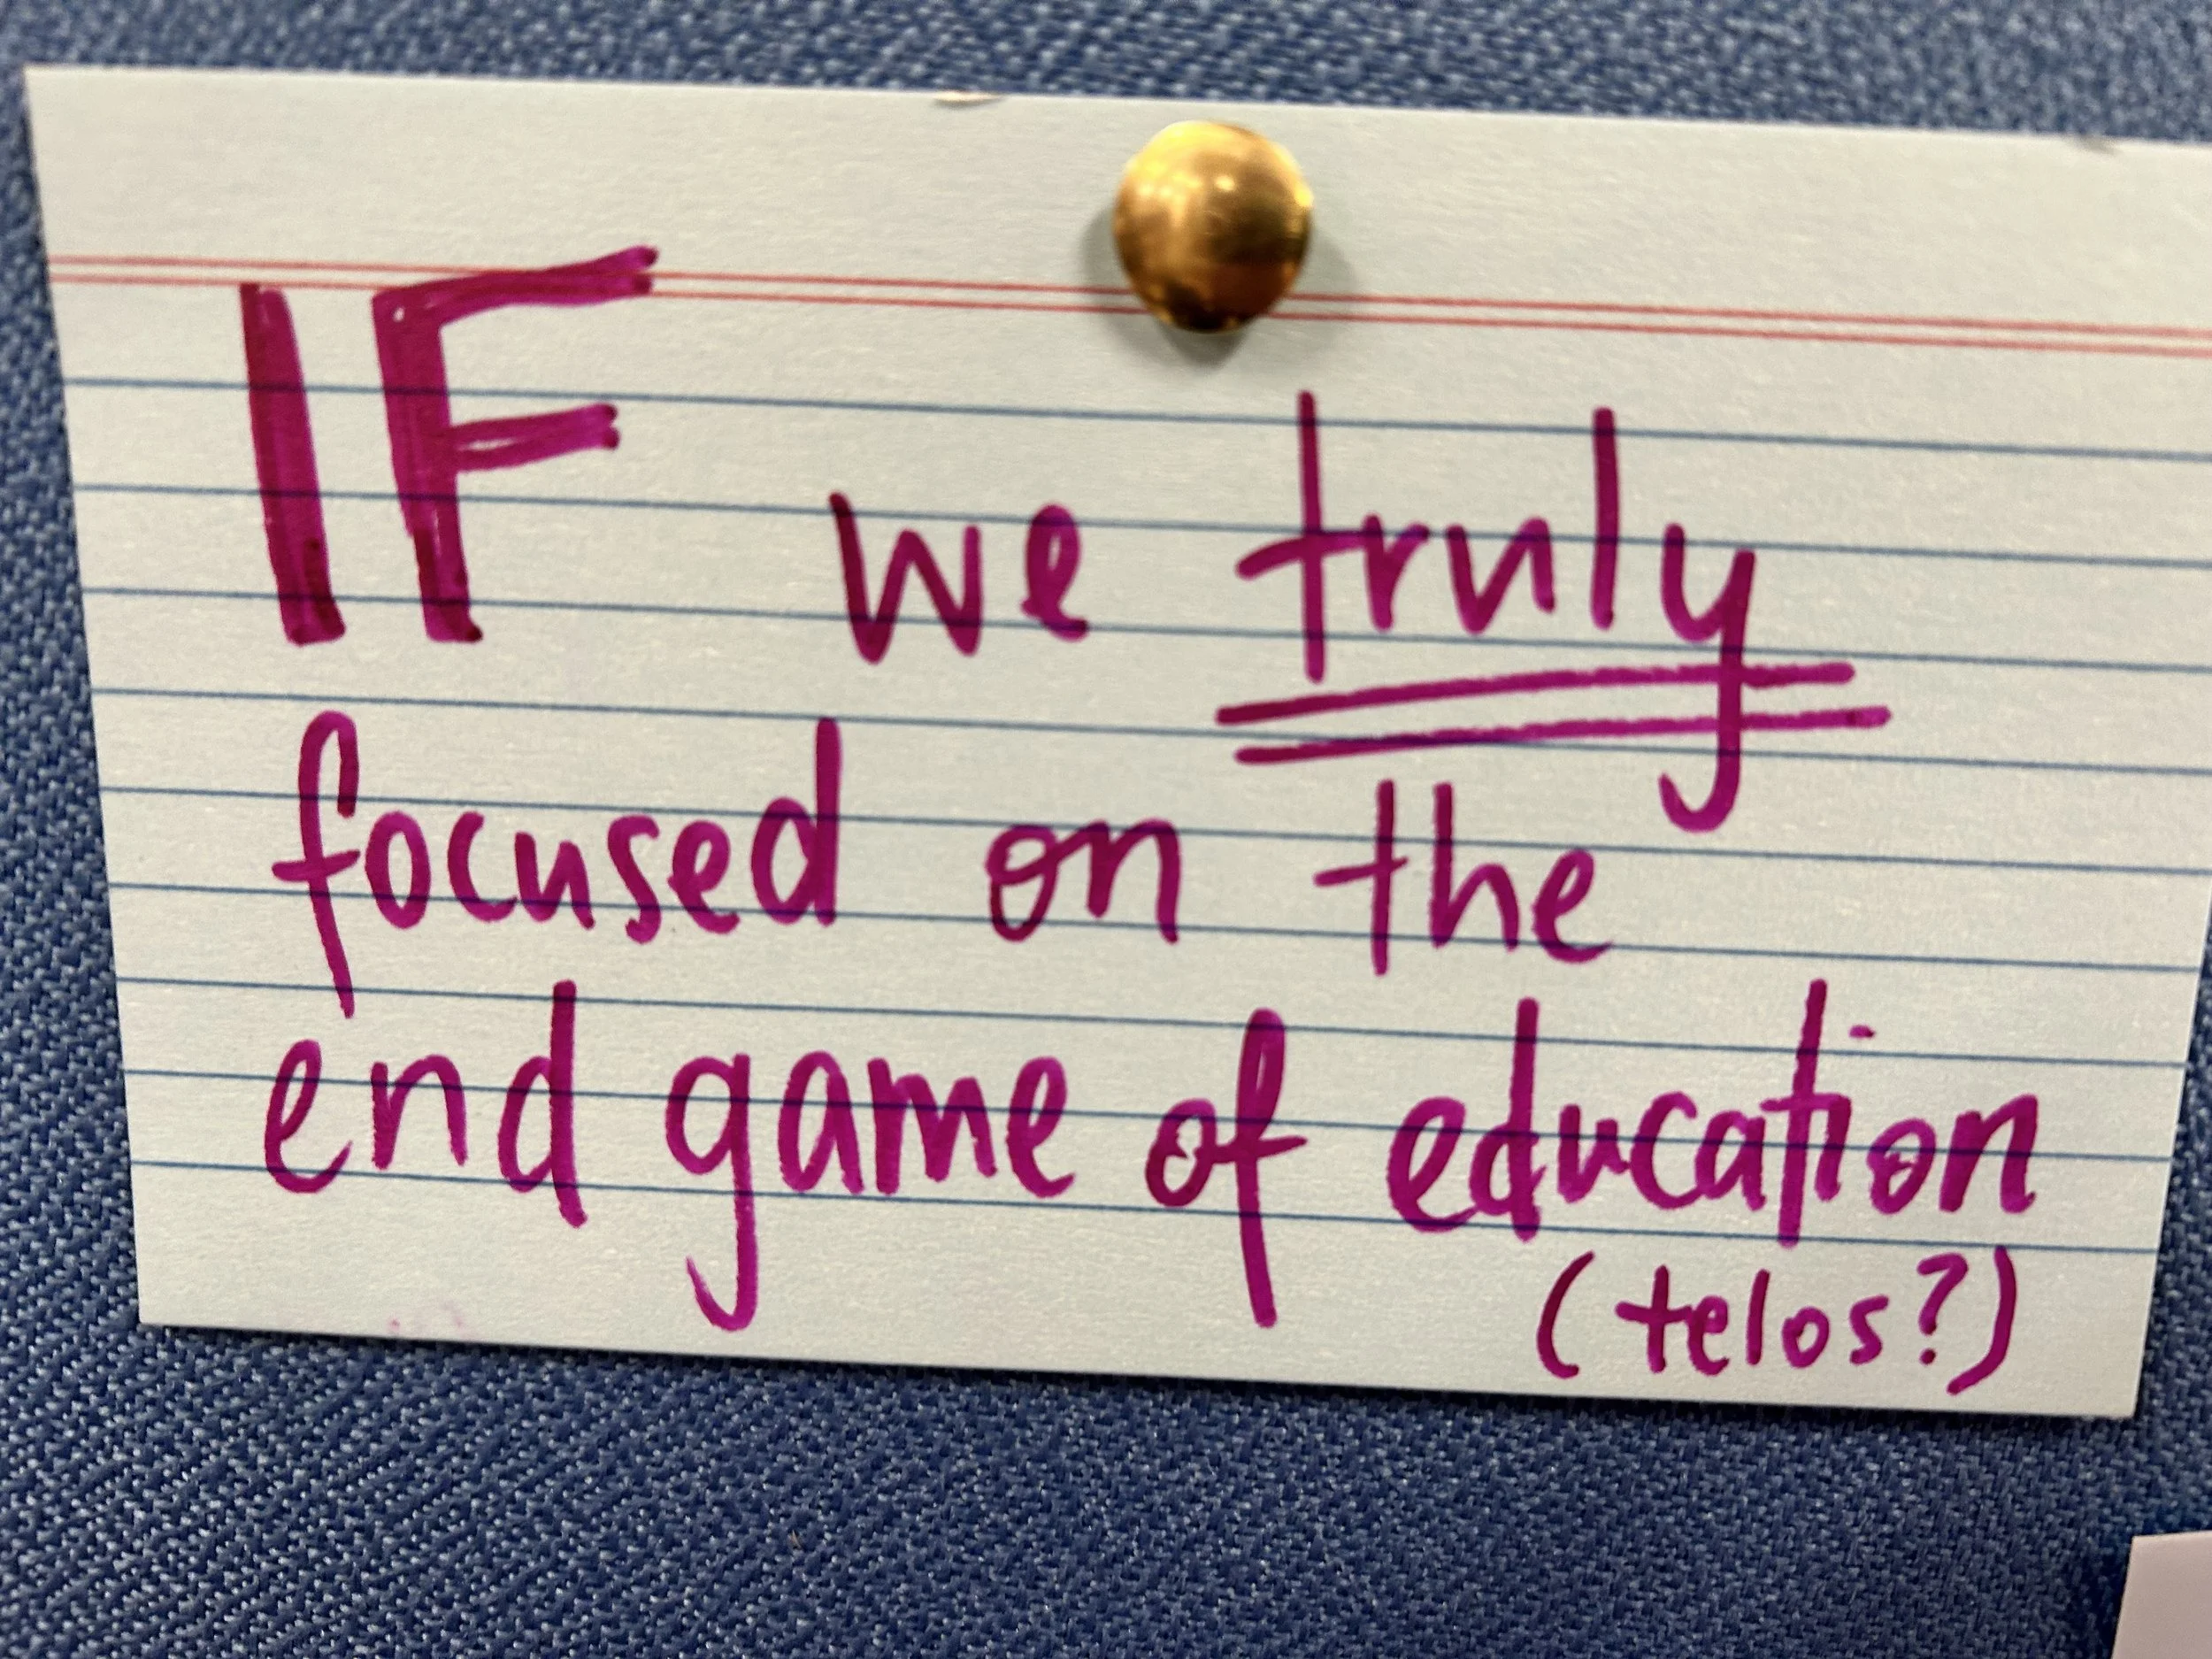 IF we truly
focused on the
end game of education
(telos?)